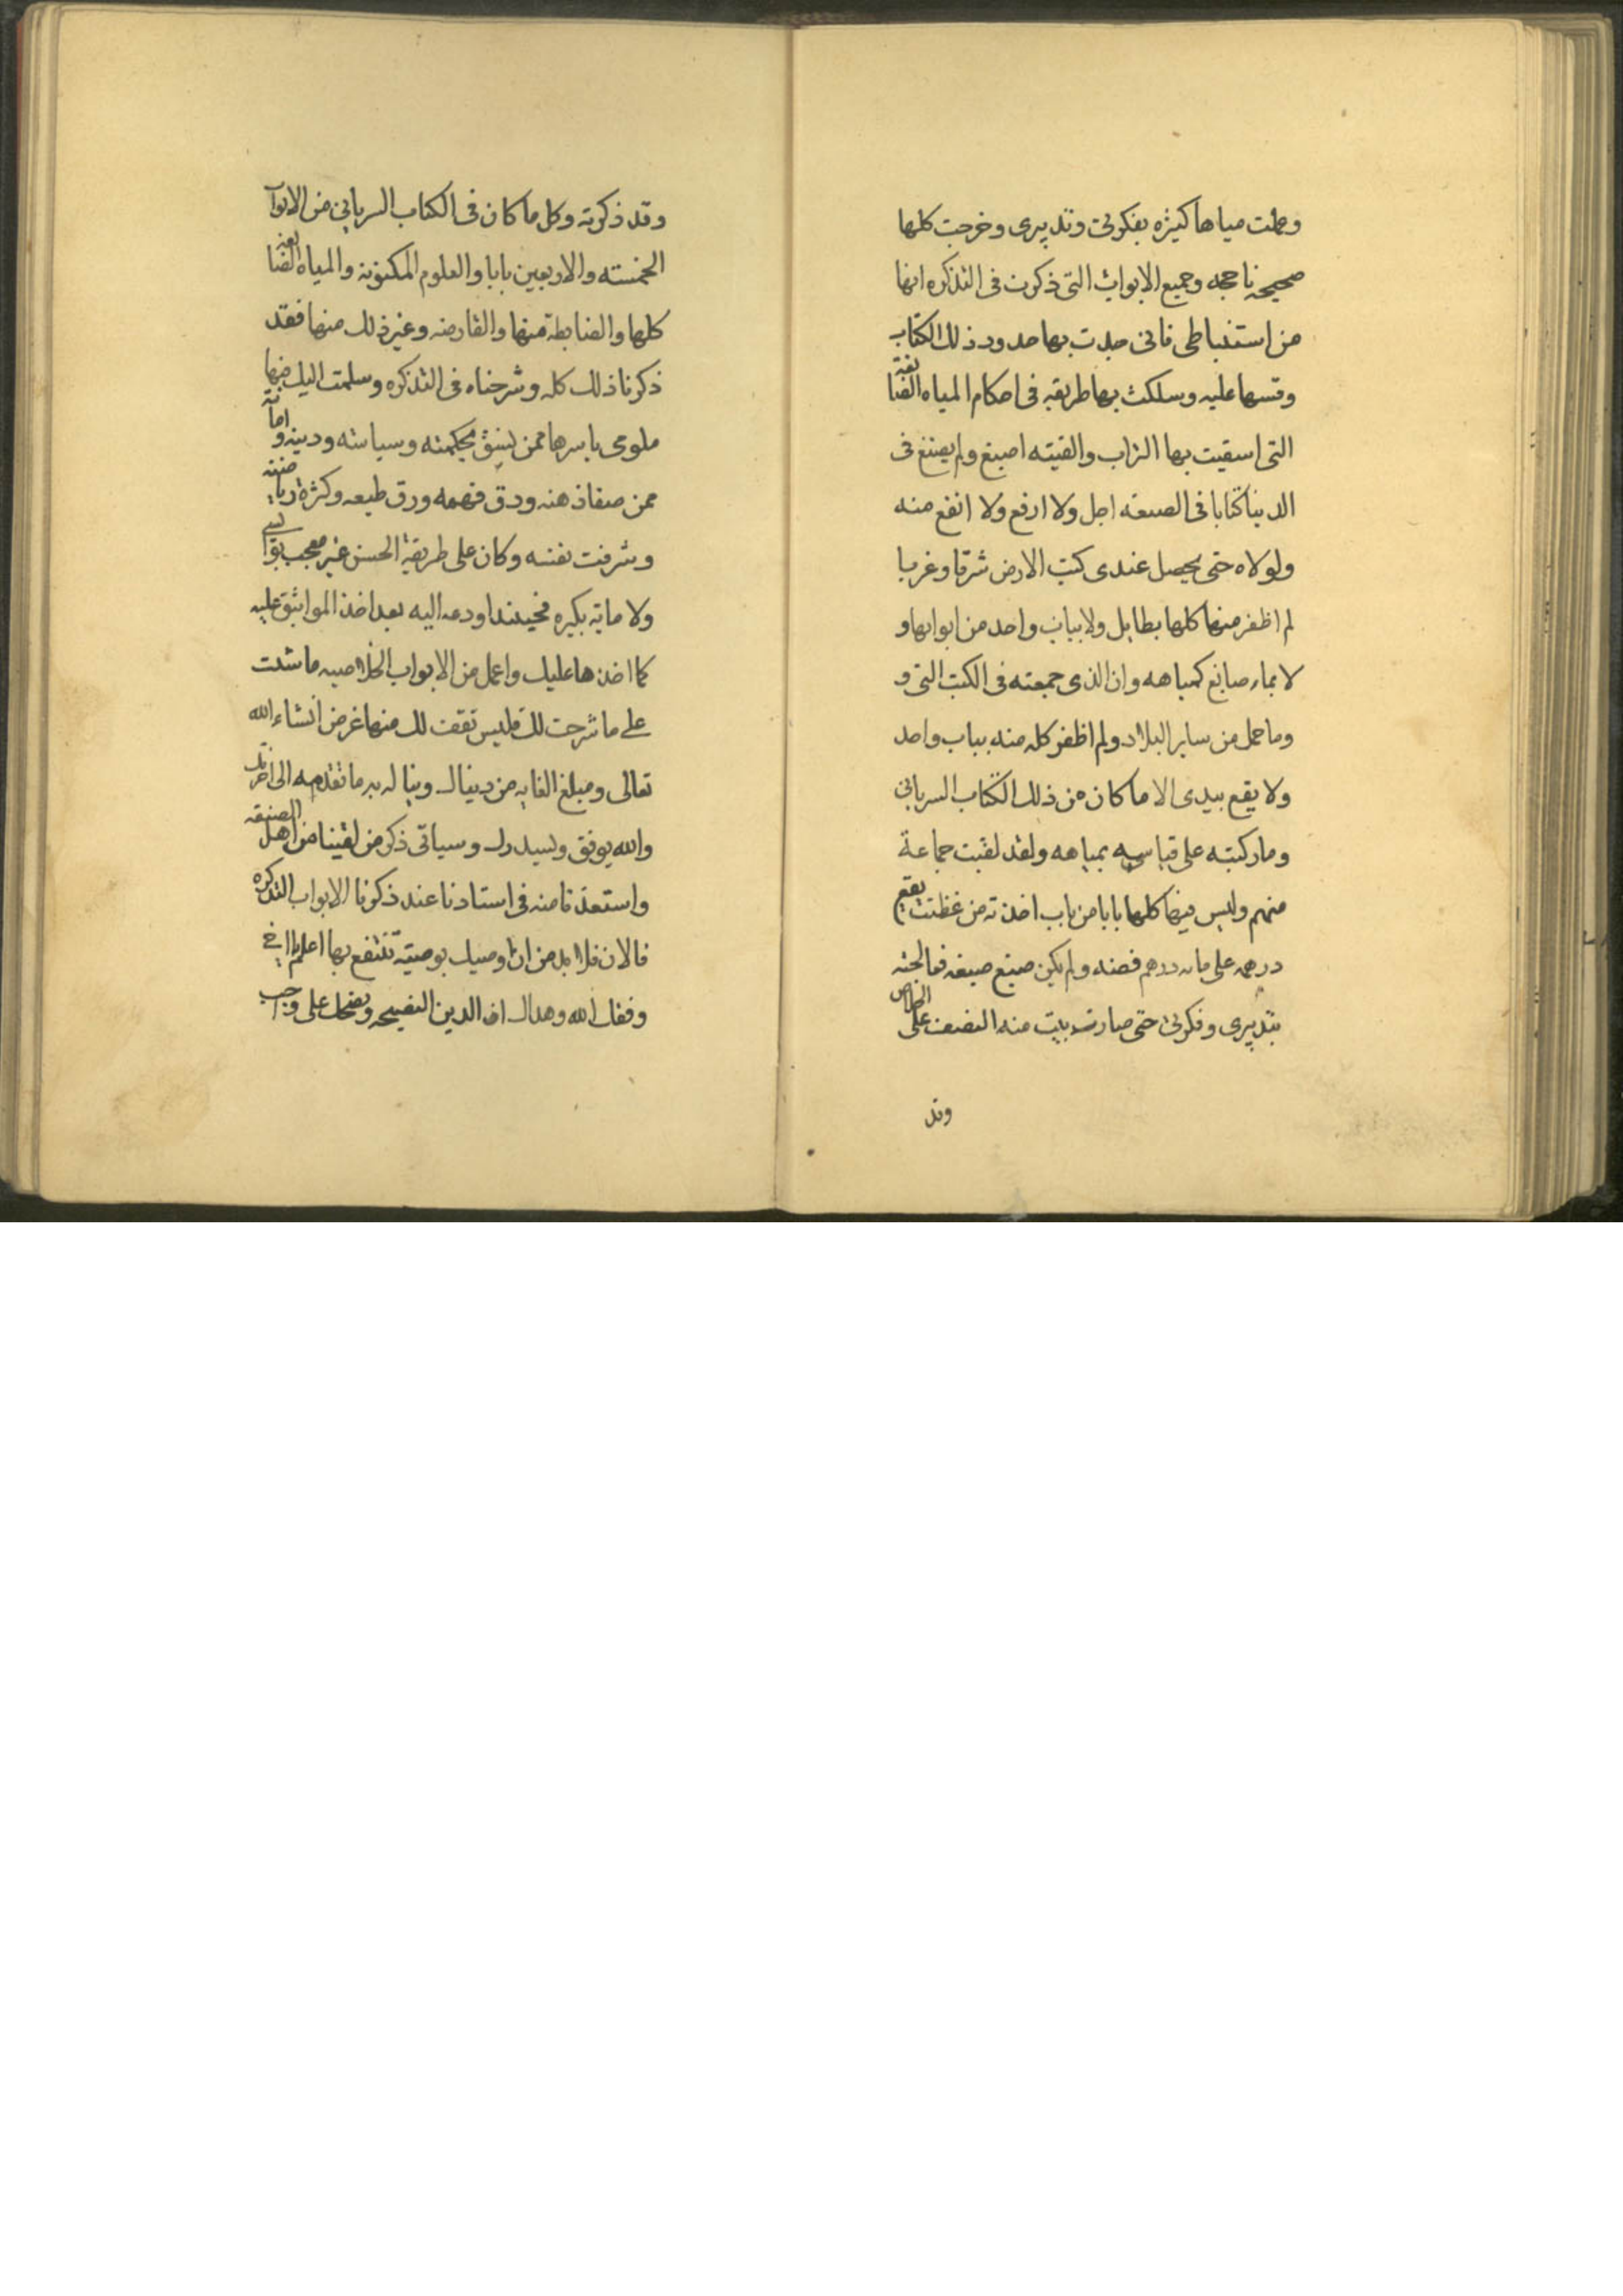 وعملت مياها كثيره بفكرتى وتدبيرى وخرجت كلها
صحيحه ناجحه وجميع الابواب التى ذكرت فى التذكره انها
من استنباطى فانى حدت بها حدود ذلك الكتاب
وقسها عليه وسلكت بها طريقه فى احكام المياه الصابغة
التى اسقيت بها التراب والقيته اصبغ ولم يصنع فى
الدنيا كتابا فى الصنعه اجل ولا ارفع ولا انفع منه
ولولاه حتى يحصل عندى كتب الارض شرقا وغربا
لم اظفر منها كلها بطايل ولا بباب واحد من ابوابها و
لا بماء صابغ كمياهه وان الذى جمعته فى الكتب التى و
وما حمل من ساير البلاد ولم اظفر كله منه بباب واحد
ولا يقع بيدى الا ما كان من ذلك الكتاب السريانى
وما ركبته على قياسه بمياهه ولقد لقيت جماعة
منهم وليس فيها كلها بابا من باب اخذته من يقع
درهمه على مايه درهم فضه ولم يكن صبغ صبغه فعالجته
بتدبيرى وفكرتى حتى صارت منه النصف على الخلاص
وقد
وقد ذكرته وكل ما كان فى الكتاب السريانى من الابواب
الخمسته والاربعين بابا والعلوم المكنونة والمياه الصابغة
كلها والضابطة منها والقارضه وغير ذلك منها فقد
ذكرنا ذلك كله وشرحناه فى التذكره وسلمت اليك فيها
علومى باسرها ممن يثق بحكمته وسياسته ودينه وامانته
ممن صفا ذهنه ودق فهمه ورق طبعه وكثرة رياضته
وشرفت نفسه وكان على طريقة الحسن غير معجب
ولا بكبره فحينئذ اودعه اليه بعد اخذ المواثيق عليه
كما اخذها عليك واعمل من الابواب الخلاصيه ما شئت
على ما شرحت لك فليس تقف لك منها غرض انشاء الله
تعالى ومبلغ الغايه من دنياك وينال به ما تقدمه الى اخرتك
والله يوفق ويسددك وسياتى ذكر من لقينا من اهل الصنعه
واستفدنا منه فى استادنا عند ذكرنا الابواب التذكره
فالان فلا بد من ان اوصيك بوصية تنتفع بها اعلم يا اخى
وفقك الله وهداك ان الدين النصيحه ونصحك على واجب